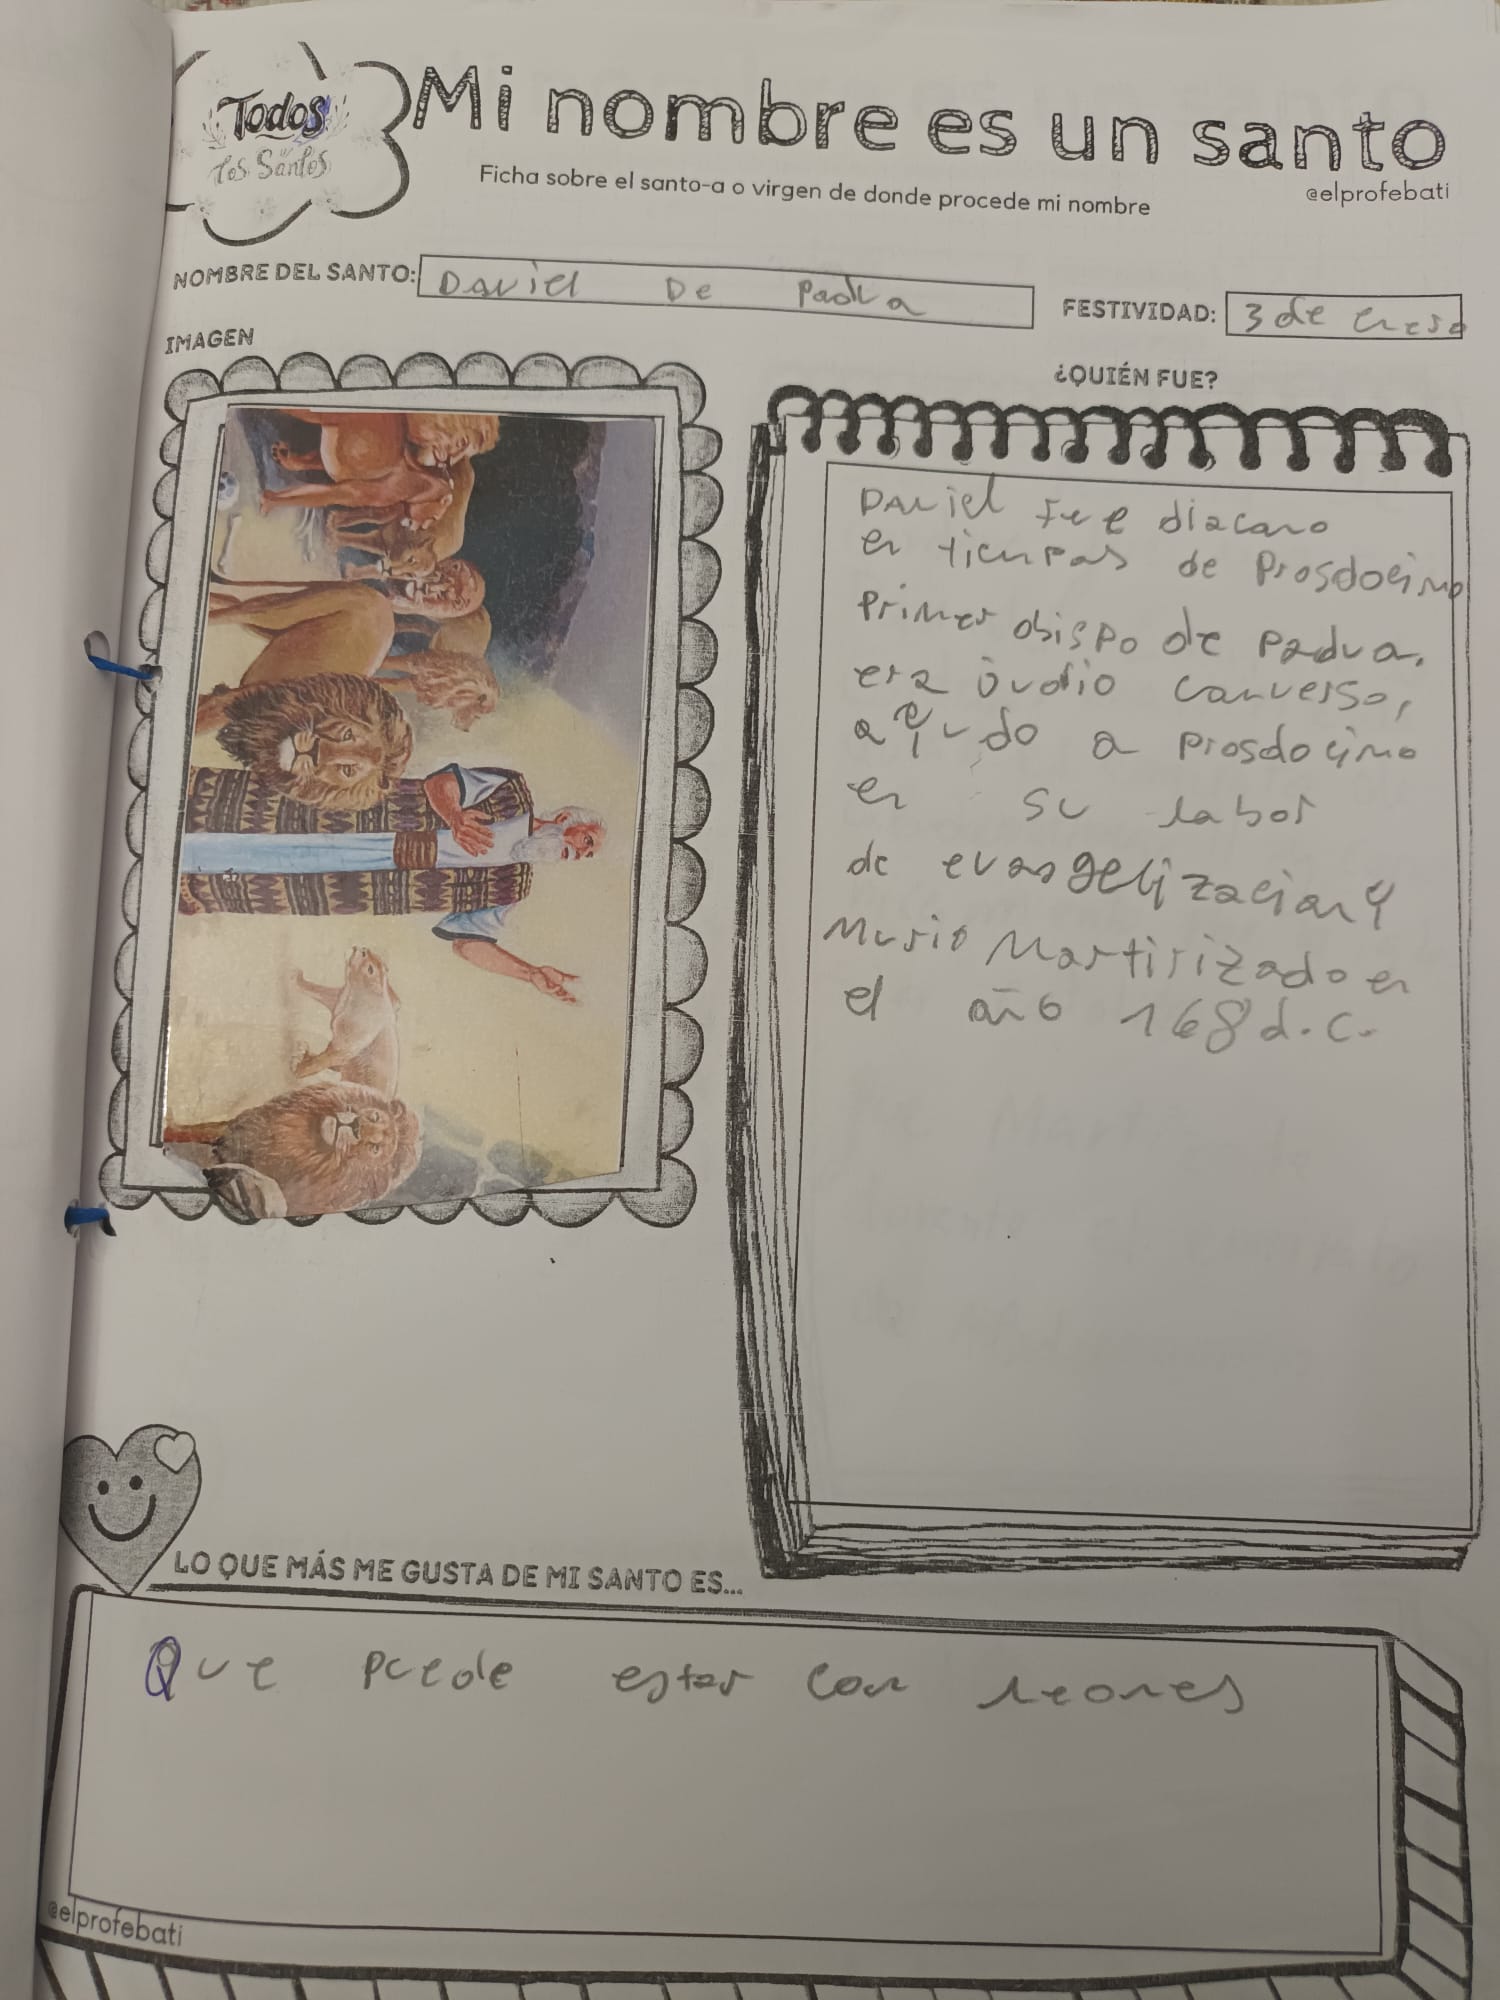 Todos
los Santos
Mi nombre es un santo
Ficha sobre el santo-a o virgen de donde procede mi nombre
@elprofebati
NOMBRE DEL SANTO: Daniel De Padua
FESTIVIDAD: 3 de enero
IMAGEN
¿QUIÉN FUE?
Daniel fue diacano
en tiempas de Prosdocimo
Primer obispo de Padua.
era judio converso,
ayudo a prosdocimo
en su labor
de evangelizacian y
Murio Martirizado en
el año 168 d.c.
LO QUE MÁS ME GUSTA DE MI SANTO ES...
Que puede estar con leones
@elprofebati